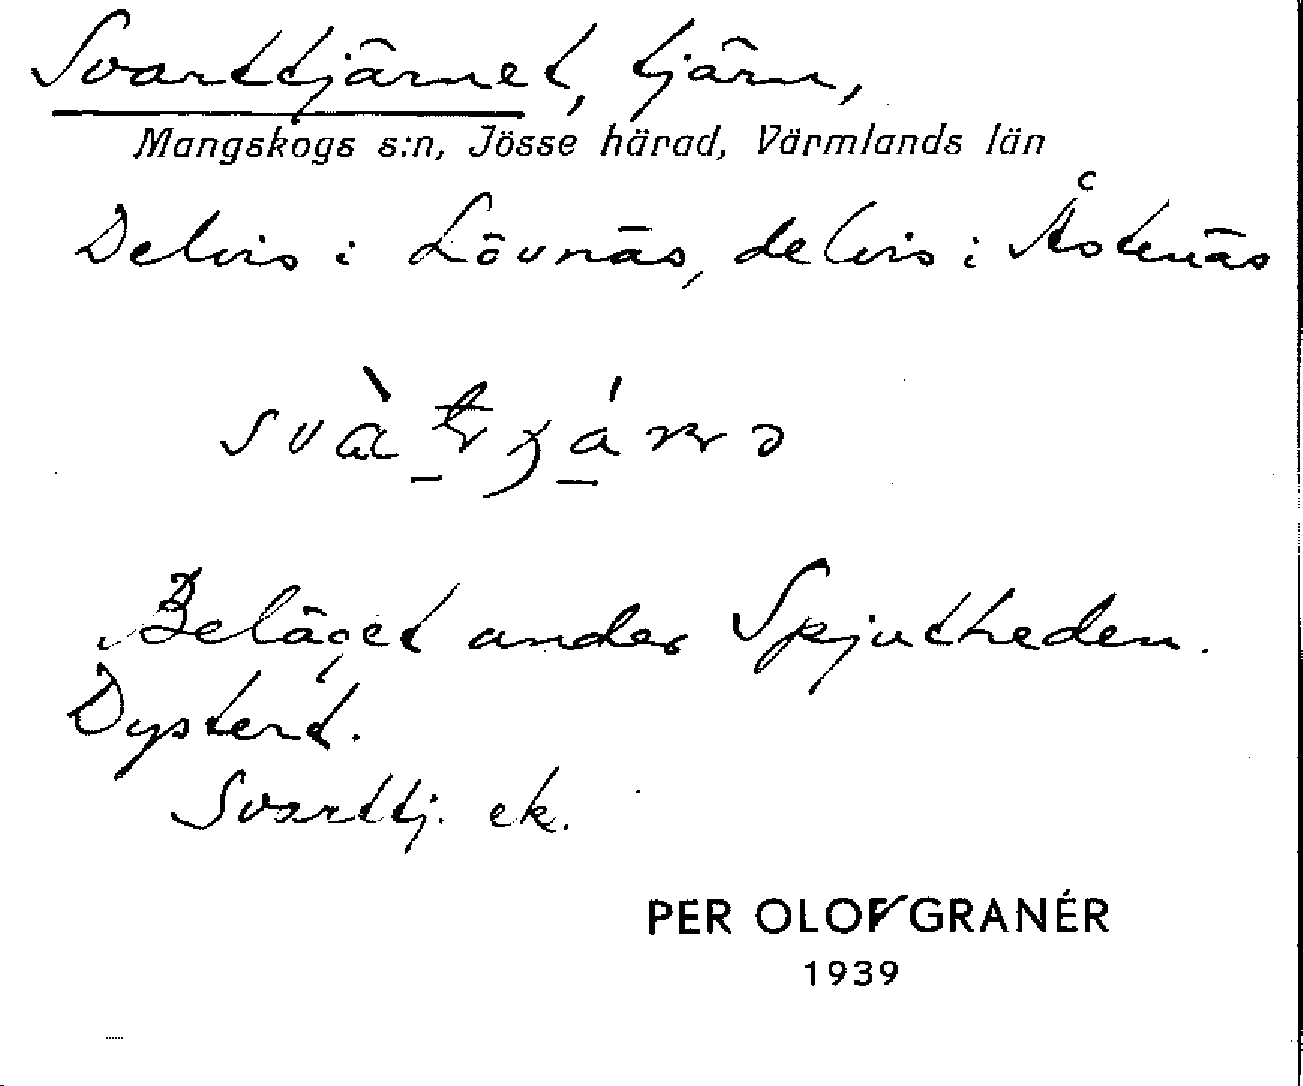 Svarttjärnet, tjärn,
Mangskogs s:n, Jösse härad, Värmlands län
Delvis i Lövnäs, delvis i Åstenäs
Beläget under Spjutheden.
Dystert.
Svarttj. ek.
PER OLOF GRANÉR
1939